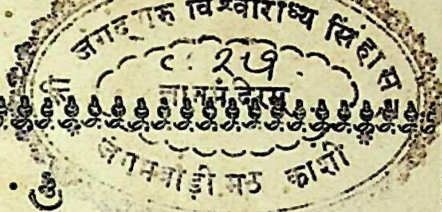 श्री जगद्गुरु विश्वाराध्य सिंहास
ज्ञानमंदिरम्
जंगमवाड़ी मठ काशी